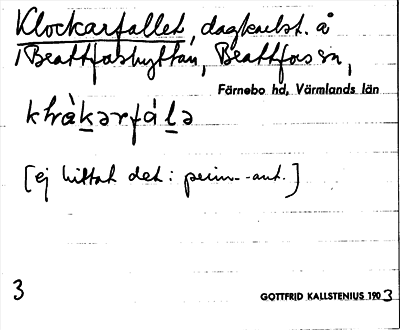 Klockarfallet, dagkarlst. å
1 Beattforshyttan, Beattfors sn,
Färnebo hd, Värmlands län
klråkərfála
[ej hittat det: prim.-ant.]
3
GOTTFRID KALLSTENIUS 1903